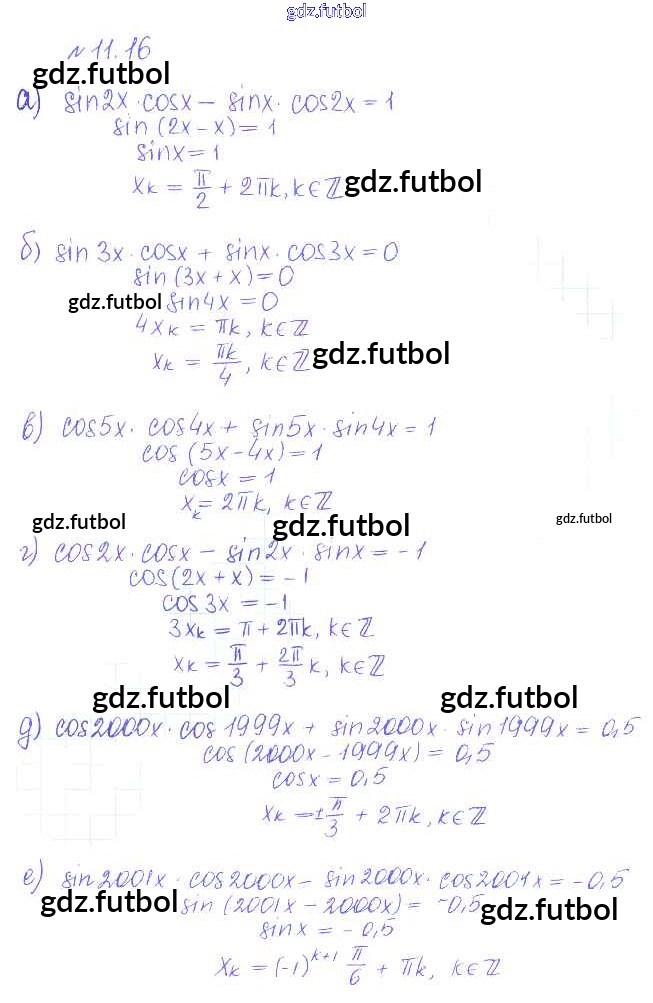 gdz.futbol
№ 11.16
gdz.futbol
а) sin2x · cosx − sinx · cos2x = 1
sin (2x − x) = 1
sinx = 1
xₖ = π/2 + 2πk, k∈ℤ gdz.futbol
б) sin 3x · cosx + sinx · cos3x = 0
sin (3x + x) = 0
gdz.futbol sin4x = 0
4xₖ = πk, k∈ℤ
xₖ = πk/4, k∈ℤ gdz.futbol
в) cos5x · cos4x + sin5x · sin4x = 1
cos (5x − 4x) = 1
cosx = 1
xₖ = 2πk, k∈ℤ
gdz.futbol gdz.futbol gdz.futbol
г) cos2x · cosx − sin2x · sinx = −1
cos(2x + x) = −1
cos3x = −1
3xₖ = π + 2πk, k∈ℤ
xₖ = π/3 + 2π/3 k, k∈ℤ
gdz.futbol gdz.futbol
д) cos2000x · cos1999x + sin2000x · sin1999x = 0,5
cos (2000x − 1999x) = 0,5
cosx = 0,5
xₖ = ±π/3 + 2πk, k∈ℤ
е) sin2001x · cos2000x − sin2000x · cos2001x = −0,5
gdz.futbol sin (2001x − 2000x) = −0,5 gdz.futbol
sinx = −0,5
xₖ = (−1)ᵏ⁺¹ π/6 + πk, k∈ℤ